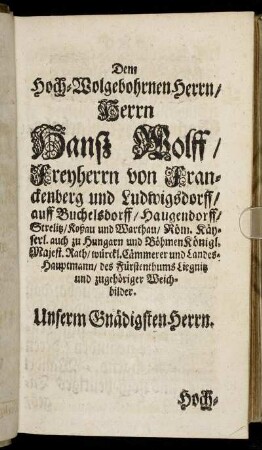 Dem
Hoch-Wolgebohrnen Herrn/
Herrn
Hanß Wolff/
Freyherrn von Fran-
ckenberg und Ludwigsdorff/
auff Buchelsdorff/ Haugendorff/
Strelitz/ Kopau und Warthau/ Röm. Käy-
serl. auch zu Hungarn und Böhmen Königl.
Majest. Rath/ würckl. Cämmerer und Landes-
Hauptmann/ des Fürstenthums Liegnitz
und zugehöriger Weich-
bilder.
Unserm Gnädigsten Herrn.
Hoch-